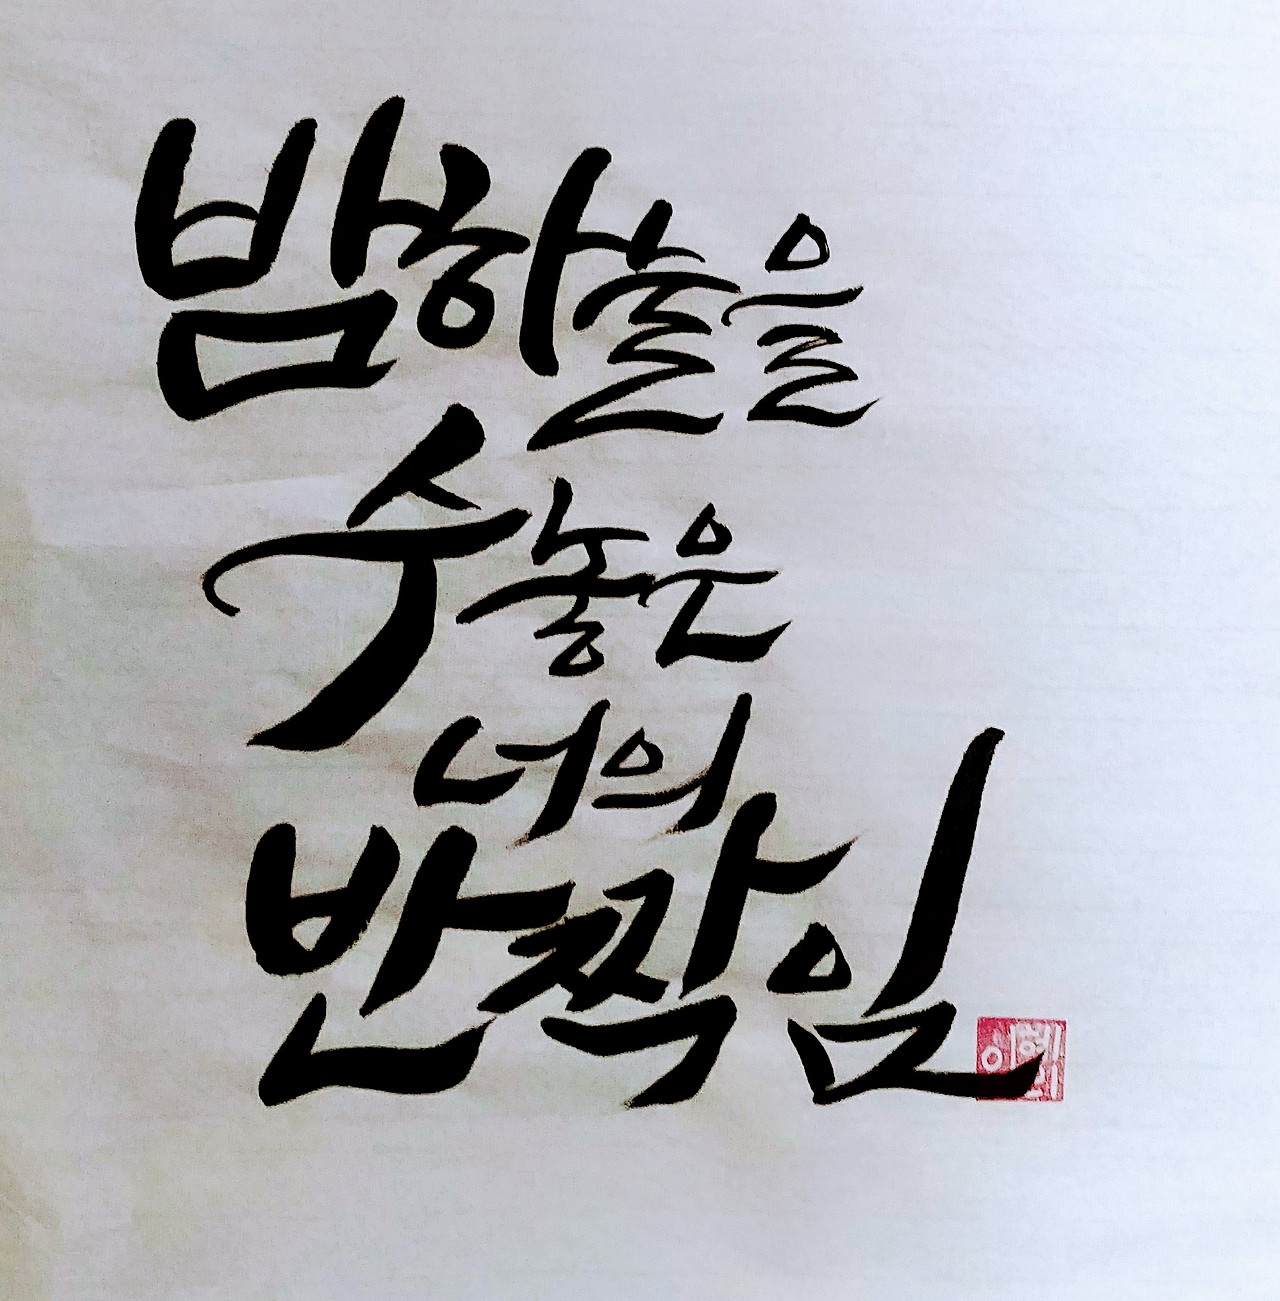 밤하늘을
수놓은
너의
반짝임